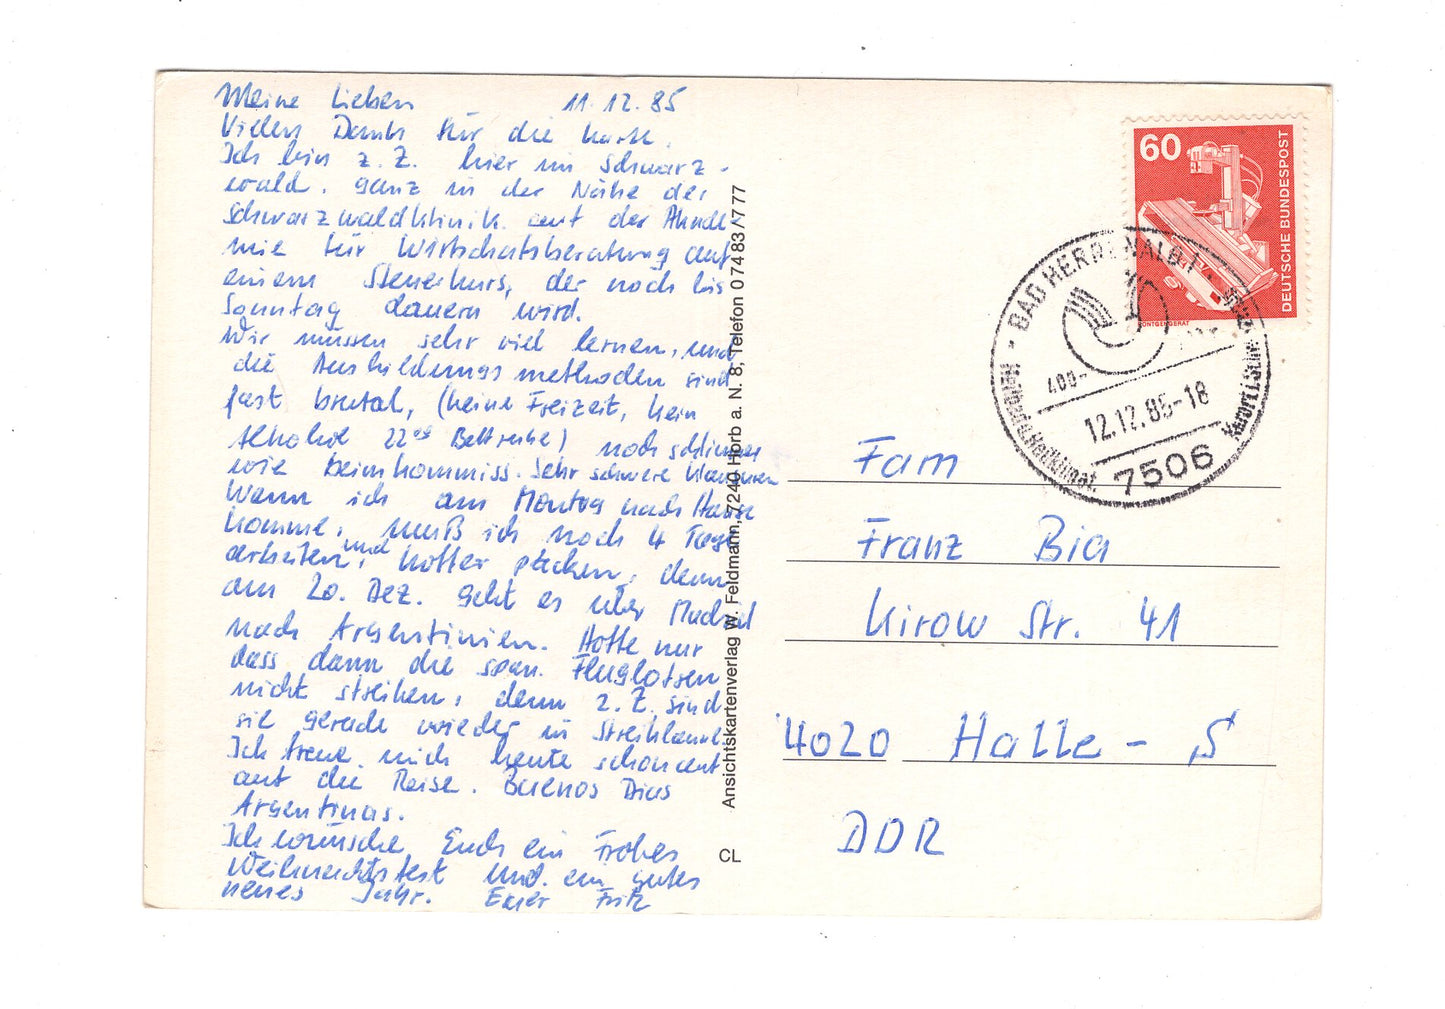 Meine Lieben 11.12.85
Vielen Dank für die Karte.
Ich bin z.Z. hier im Schwarz-
wald. ganz in der Nähe der
Schwarzwaldklinik. auf der Akade-
mie für Wirtschaftsberatung auf
einem Steuerkurs, der noch bis
Sonntag dauern wird.
Wir müssen sehr viel lernen, und
die Ausbildungsmethoden sind
fast brutal, (keine Freizeit, kein
Alkohol 22⁰⁰ Bettruhe) noch schlimmer
wie beim Kommiss. Sehr schwere Klausuren
Wenn ich am Montag nach Hause
komme, muß ich noch 4 Tage
arbeiten, und Koffer packen, denn
am 20. Dez. geht es über Madrid
nach Argentinien. Hoffe nur
dass dann die span. Fluglotsen
nicht streiken, denn z.Z. sind
sie gerade wieder in Streiklaune
Ich freue mich heute schon auf
auf die Reise. Buenos Dias
Argentinas.
Ich wünsche Euch ein Frohes
Weihnachtsfest und ein gutes
neues Jahr. Euer Fritz
Ansichtskartenverlag W. Feldmann, 7240 Horb a. N. 8, Telefon 07483/777
CL
60
DEUTSCHE BUNDESPOST
RÖNTGENGERÄT
BAD HERRENALB 1
12.12.85-18
7506
Fam
Franz Bia
Kirow Str. 41
4020 Halle - S
DDR